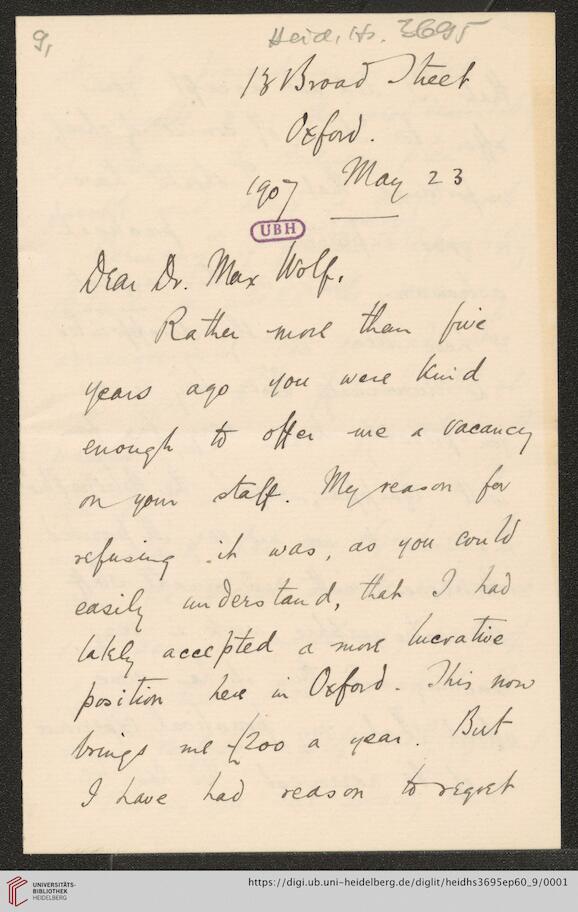 9,
Heid. Hs. 3695
13 Broad Street
Oxford.
1907 May 23
UBH
Dear Dr. Max Wolf,
Rather more than five
years ago you were kind
enough to offer me a vacancy
on your staff. My reason for
refusing it was, as you could
easily understand, that I had
lately accepted a more lucrative
position here in Oxford. This now
brings me £200 a year. But
I have had reason to regret
UNIVERSITÄTS-
BIBLIOTHEK
HEIDELBERG
https://digi.ub.uni-heidelberg.de/diglit/heidhs3695ep60_9/0001